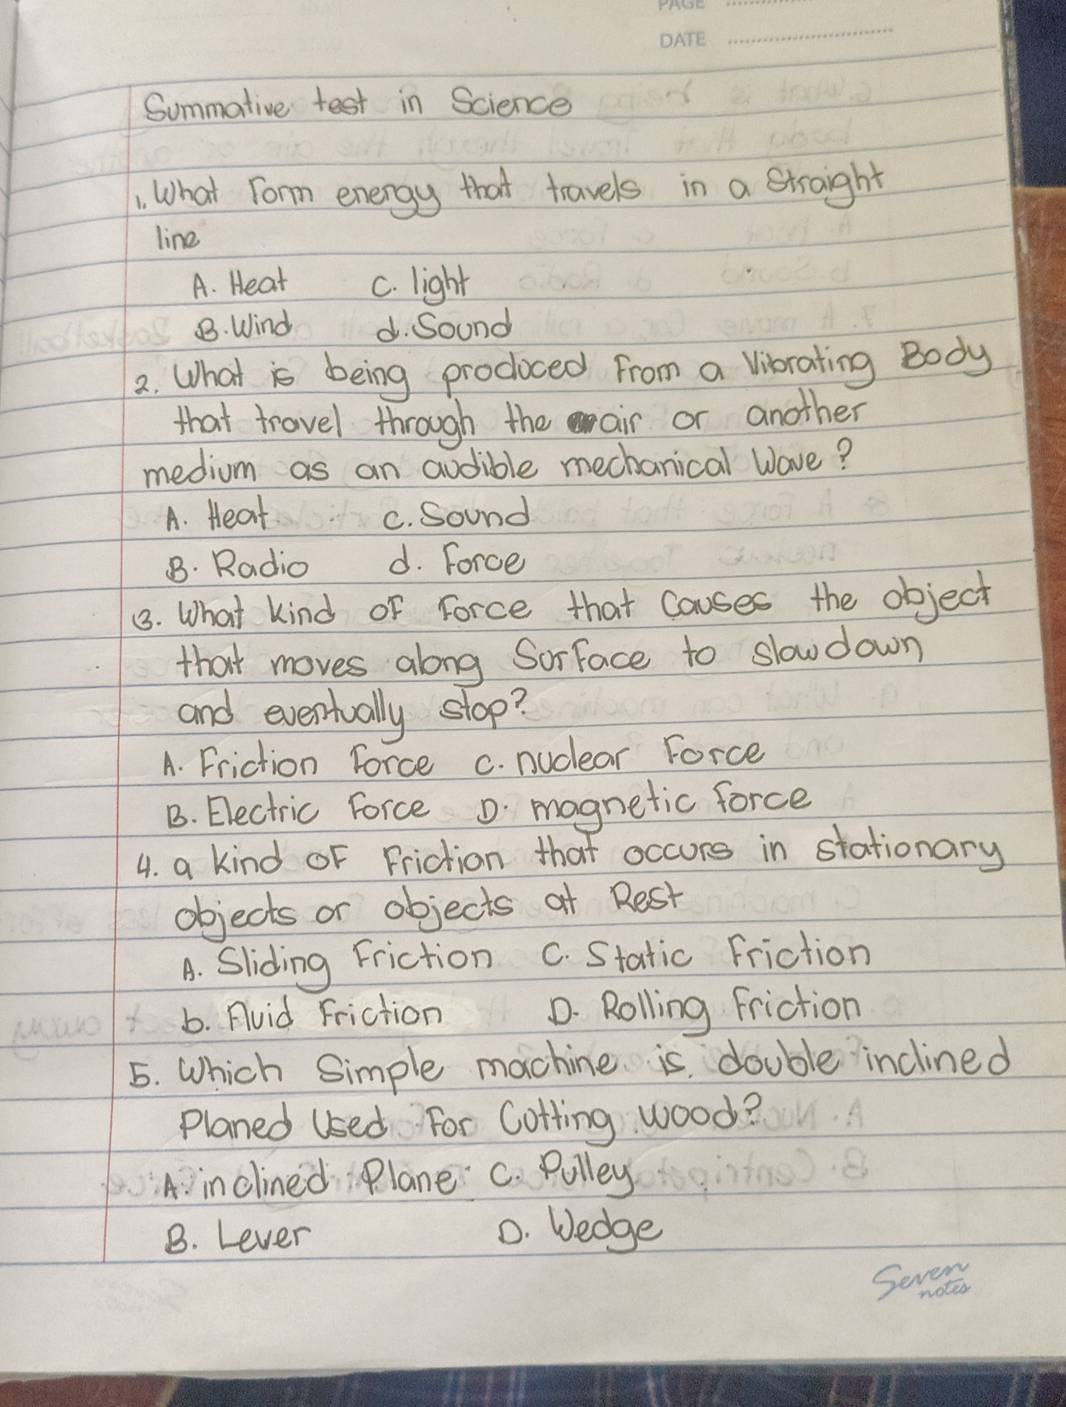 PAGE
DATE
Summative test in Science
1. What Form energy that travels in a Straight
line
A. Heat C. light
B. Wind d. Sound
2. What is being produced From a Vibrating Body
that travel through the air or another
medium as an audible mechanical Wave?
A. Heat C. Sound
B. Radio d. Force
3. What Kind OF Force that Causes the object
that moves along Surface to slowdown
and eventually stop?
A. Friction Force C. nuclear Force
B. Electric Force D. magnetic force
4. a Kind OF Friction that occurs in stationary
objects or objects at Rest
A. Sliding Friction C. Static Friction
b. Fluid Friction D. Rolling Friction
5. Which Simple machine is double inclined
Planed Used For Cutting wood?
A. inclined Plane C. Pulley
B. Lever D. Wedge
Seven
notes